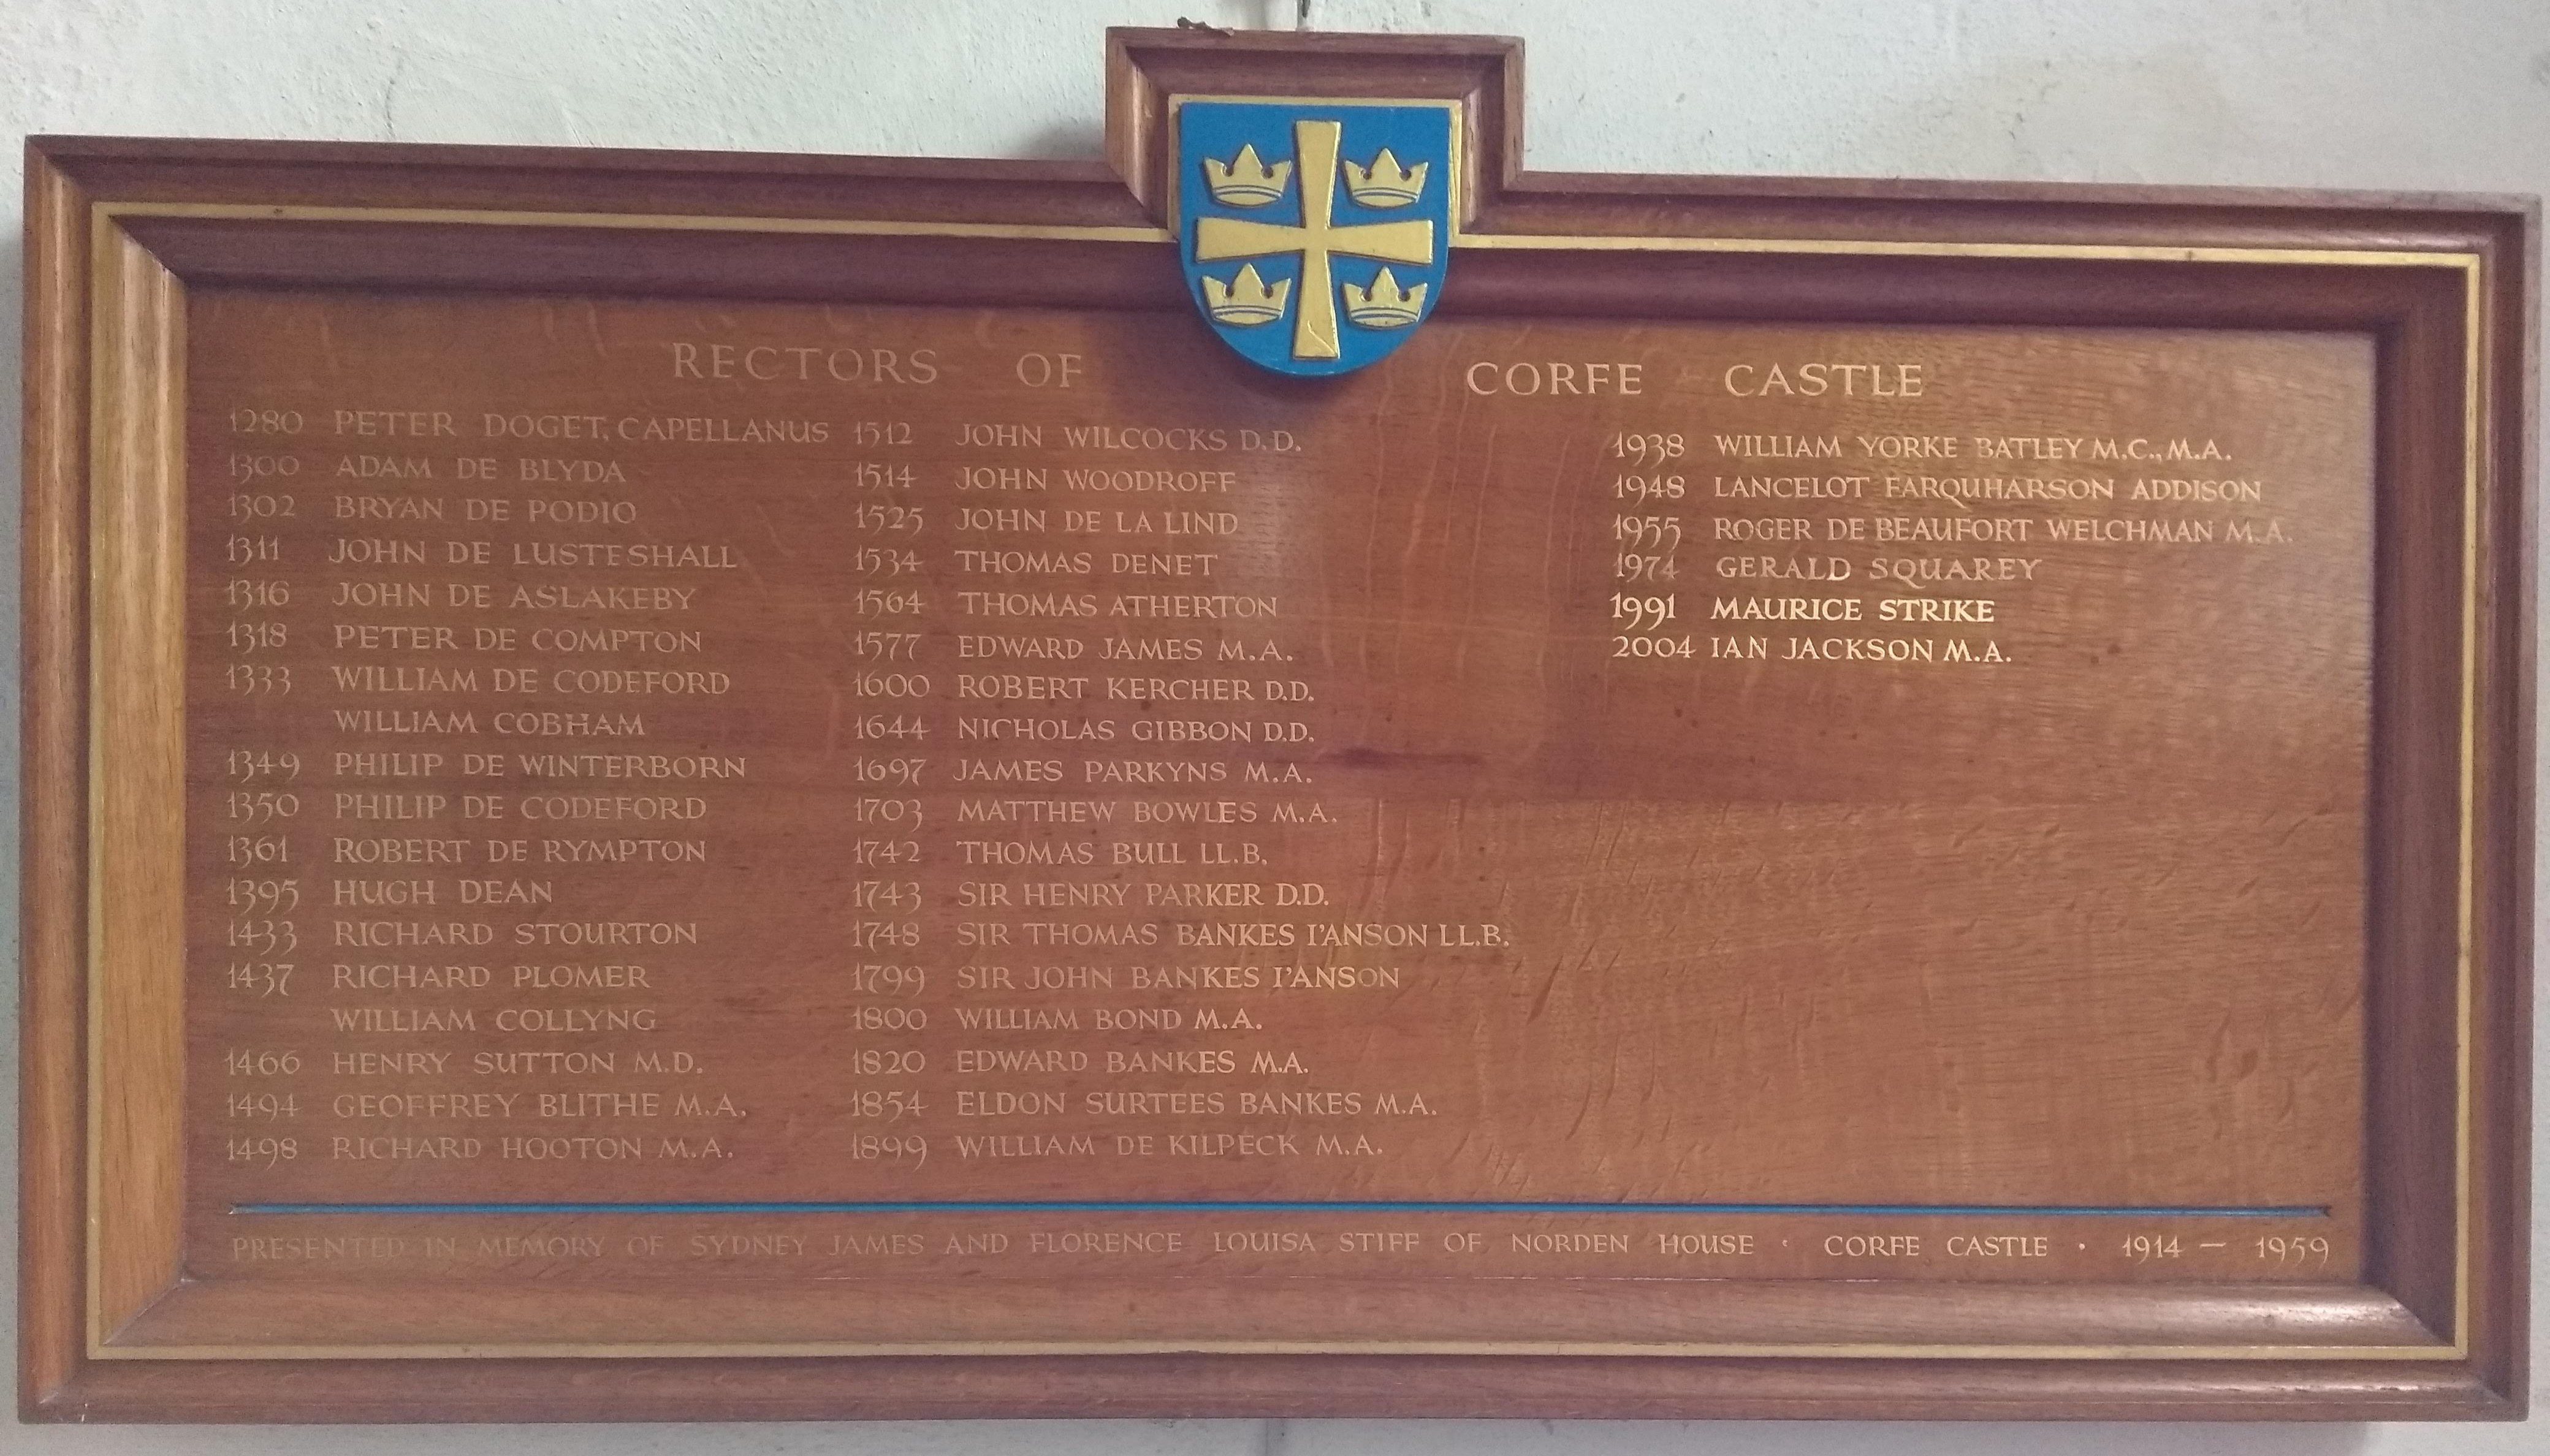 RECTORS OF CORFE CASTLE
1280 PETER DOGET, CAPELLANUS
1300 ADAM DE BLYDA
1302 BRYAN DE PODIO
1311 JOHN DE LUSTESHALL
1316 JOHN DE ASLAKEBY
1318 PETER DE COMPTON
1333 WILLIAM DE CODEFORD
WILLIAM COBHAM
1349 PHILIP DE WINTERBORN
1350 PHILIP DE CODEFORD
1361 ROBERT DE RYMPTON
1395 HUGH DEAN
1433 RICHARD STOURTON
1437 RICHARD PLOMER
WILLIAM COLLYNG
1466 HENRY SUTTON M.D.
1494 GEOFFREY BLITHE M.A.
1498 RICHARD HOOTON M.A.
1512 JOHN WILCOCKS D.D.
1514 JOHN WOODROFF
1525 JOHN DE LA LIND
1534 THOMAS DENET
1564 THOMAS ATHERTON
1577 EDWARD JAMES M.A.
1600 ROBERT KERCHER D.D.
1644 NICHOLAS GIBBON D.D.
1697 JAMES PARKYNS M.A.
1703 MATTHEW BOWLES M.A.
1742 THOMAS BULL LL.B.
1743 SIR HENRY PARKER D.D.
1748 SIR THOMAS BANKES I'ANSON LL.B.
1799 SIR JOHN BANKES I'ANSON
1800 WILLIAM BOND M.A.
1820 EDWARD BANKES M.A.
1854 ELDON SURTEES BANKES M.A.
1899 WILLIAM DE KILPECK M.A.
1938 WILLIAM YORKE BATLEY M.C., M.A.
1948 LANCELOT FARQUHARSON ADDISON
1955 ROGER DE BEAUFORT WELCHMAN M.A.
1974 GERALD SQUAREY
1991 MAURICE STRIKE
2004 IAN JACKSON M.A.
PRESENTED IN MEMORY OF SYDNEY JAMES AND FLORENCE LOUISA STIFF OF NORDEN HOUSE · CORFE CASTLE · 1914 – 1959